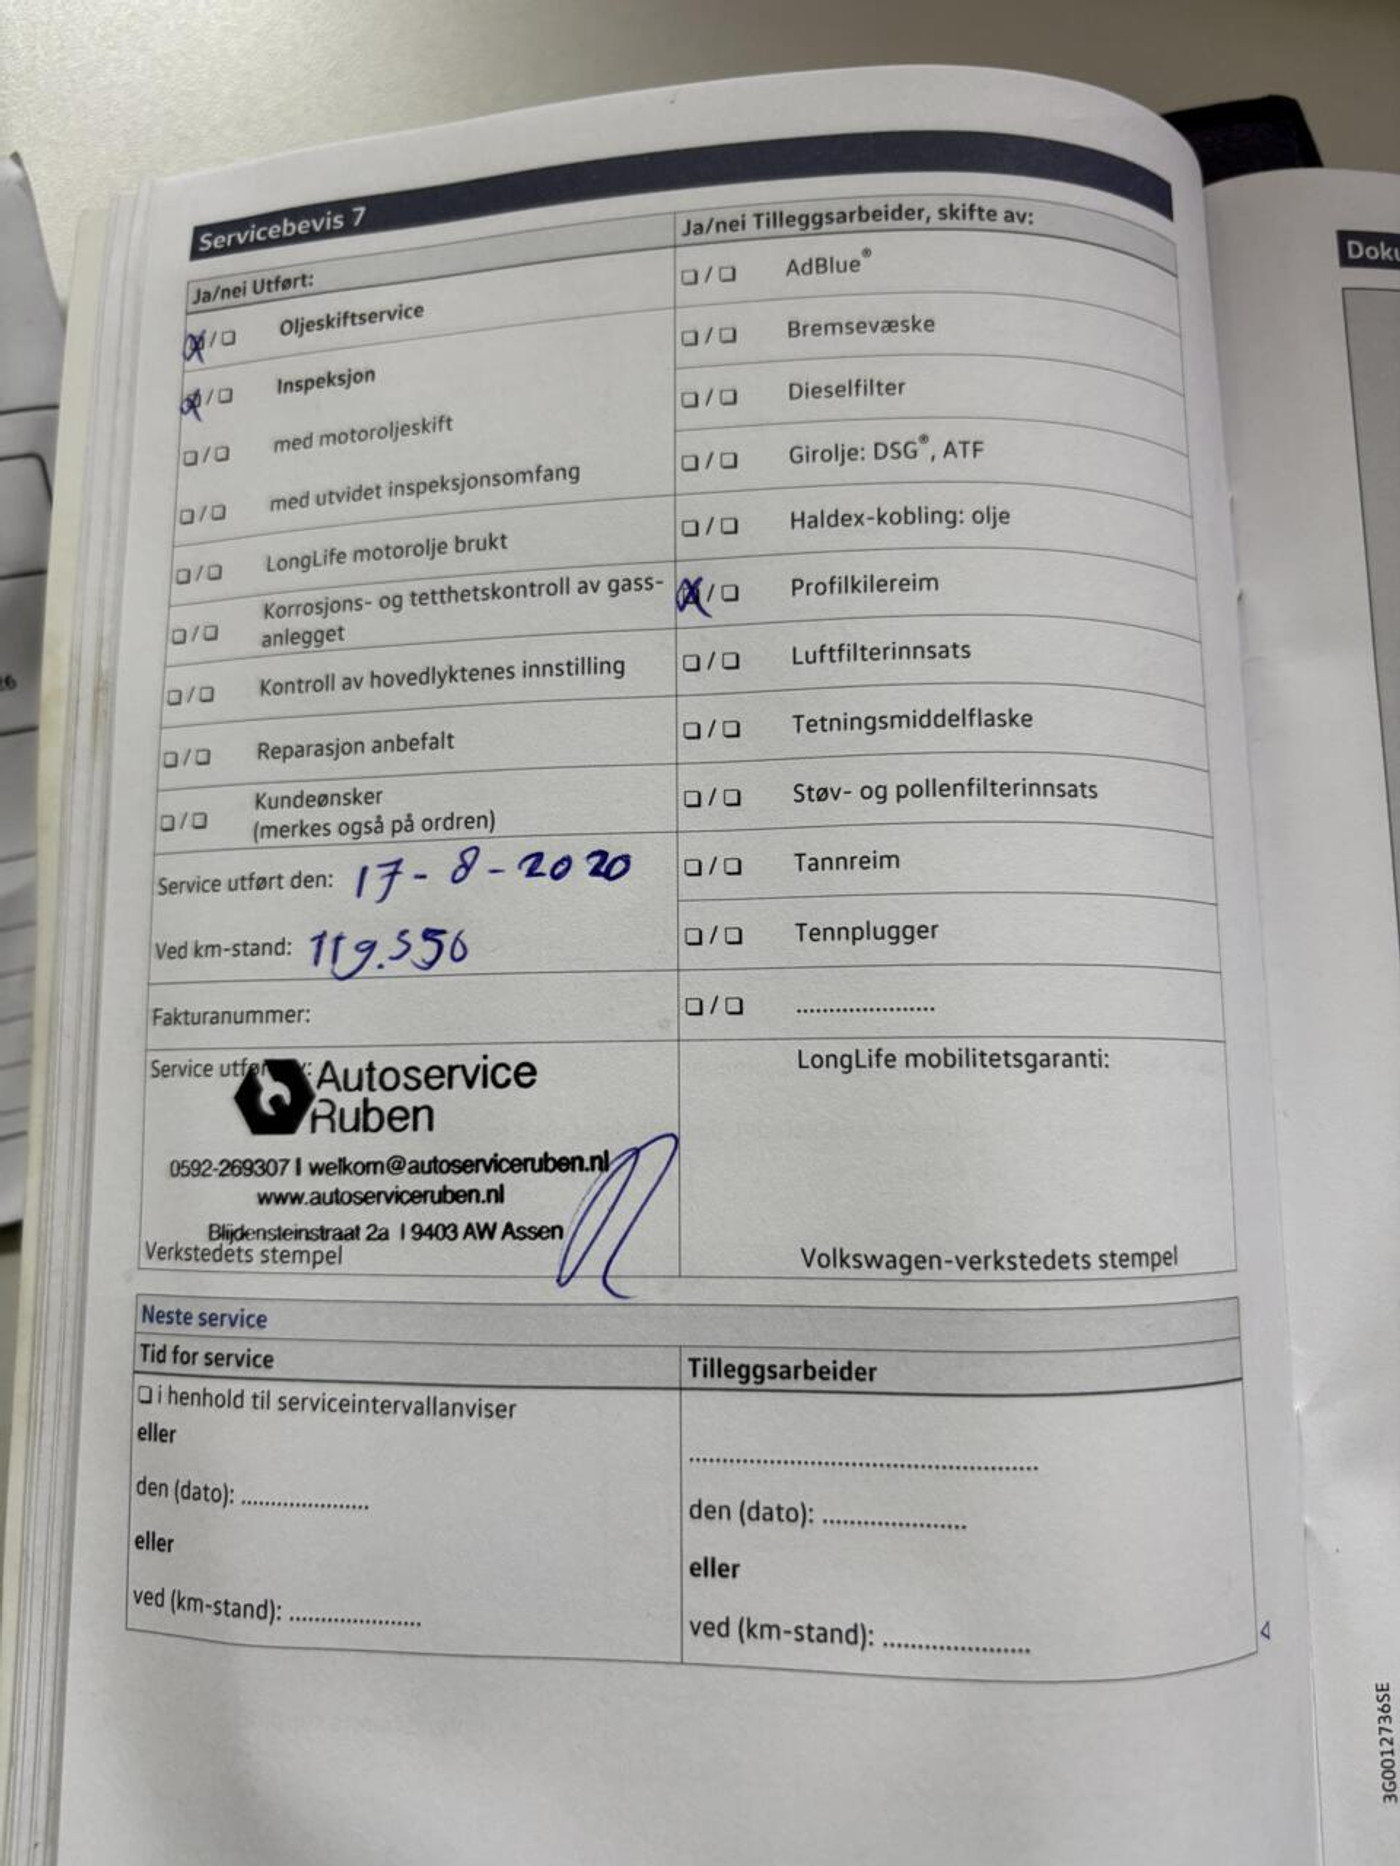 Servicebevis 7
Ja/nei Utført:
☒/❏ Oljeskiftservice
☒/❏ Inspeksjon
❏/❏ med motoroljeskift
❏/❏ med utvidet inspeksjonsomfang
❏/❏ LongLife motorolje brukt
❏/❏ Korrosjons- og tetthetskontroll av gass-
anlegget
❏/❏ Kontroll av hovedlyktenes innstilling
❏/❏ Reparasjon anbefalt
❏/❏ Kundeønsker
(merkes også på ordren)
Service utført den: 17-8-2020
Ved km-stand: 119.556
Fakturanummer:
Ja/nei Tilleggsarbeider, skifte av:
❏/❏ AdBlue®
❏/❏ Bremsevæske
❏/❏ Dieselfilter
❏/❏ Girolje: DSG®, ATF
❏/❏ Haldex-kobling: olje
☒/❏ Profilkilereim
❏/❏ Luftfilterinnsats
❏/❏ Tetningsmiddelflaske
❏/❏ Støv- og pollenfilterinnsats
❏/❏ Tannreim
❏/❏ Tennplugger
❏/❏ .....................
Service
Autoservice
Ruben
0592-269307 | welkom@autoserviceruben.nl
www.autoserviceruben.nl
Blijdensteinstraat 2a | 9403 AW Assen
Verkstedets stempel
LongLife mobilitetsgaranti:
Volkswagen-verkstedets stempel
Neste service
Tid for service
❏ i henhold til serviceintervallanviser
eller
den (dato): ...................
eller
ved (km-stand): ...................
Tilleggsarbeider
..................................................
den (dato): .....................
eller
ved (km-stand): .....................
Doku
26
3G0012736SE